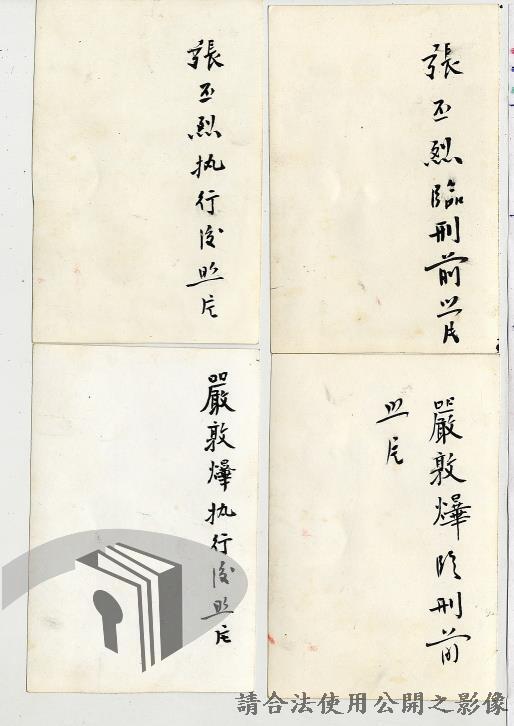 張丕烈臨刑前照片
張丕烈执行後照片
嚴敦燁臨刑前
照片
嚴敦燁执行後照片
請合法使用公開之影像